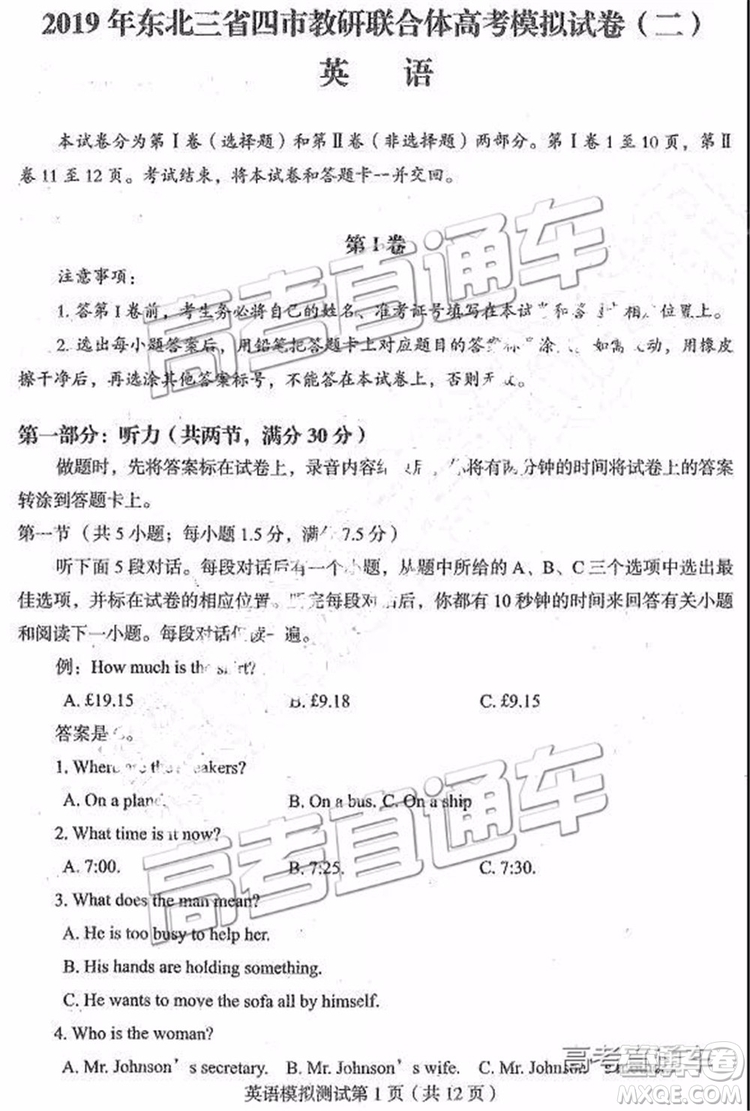 2019 年东北三省四市教研联合体高考模拟试卷（二）
英 语
本试卷分为第Ⅰ卷（选择题）和第Ⅱ卷（非选择题）两部分。第Ⅰ卷 1 至 10 页，第Ⅱ
卷 11 至 12 页。考试结束，将本试卷和答题卡一并交回。
第Ⅰ卷
注意事项：
1. 答第Ⅰ卷前，考生务必将自己的姓名、准考证号填写在本试 和答题 相 位置上。
2. 选出每小题答案后，用铅笔把答题卡上对应题目的答案标 涂 如需 动，用橡皮
擦干净后，再选涂其他答案标号，不能答在本试卷上，否则无 。
第一部分：听力（共两节，满分 30 分）
做题时，先将答案标在试卷上，录音内容结 后， 将有两分钟的时间将试卷上的答案
转涂到答题卡上。
第一节（共 5 小题；每小题 1.5 分，满 7.5 分）
听下面 5 段对话。每段对话后有一个小题，从题中所给的 A、B、C 三个选项中选出最
佳选项，并标在试卷的相应位置。听完每段对话后，你都有 10 秒钟的时间来回答有关小题
和阅读下一小题。每段对话 读一遍。
例：How much is the shirt?
A. £19.15 B. £9.18 C. £9.15
答案是 C。
1. Where are the speakers?
A. On a plane. B. On a bus. C. On a ship
2. What time is it now?
A. 7:00. B. 7:25. C. 7:30.
3. What does the man mean?
A. He is too busy to help her.
B. His hands are holding something.
C. He wants to move the sofa all by himself.
4. Who is the woman?
A. Mr. Johnson’s secretary. B. Mr. Johnson’s wife. C. Mr. Johnson’s
英语模拟测试第 1 页（共 12 页）
高考直通车
高考直通车
高考直通车
答案圈
MXQE.COM